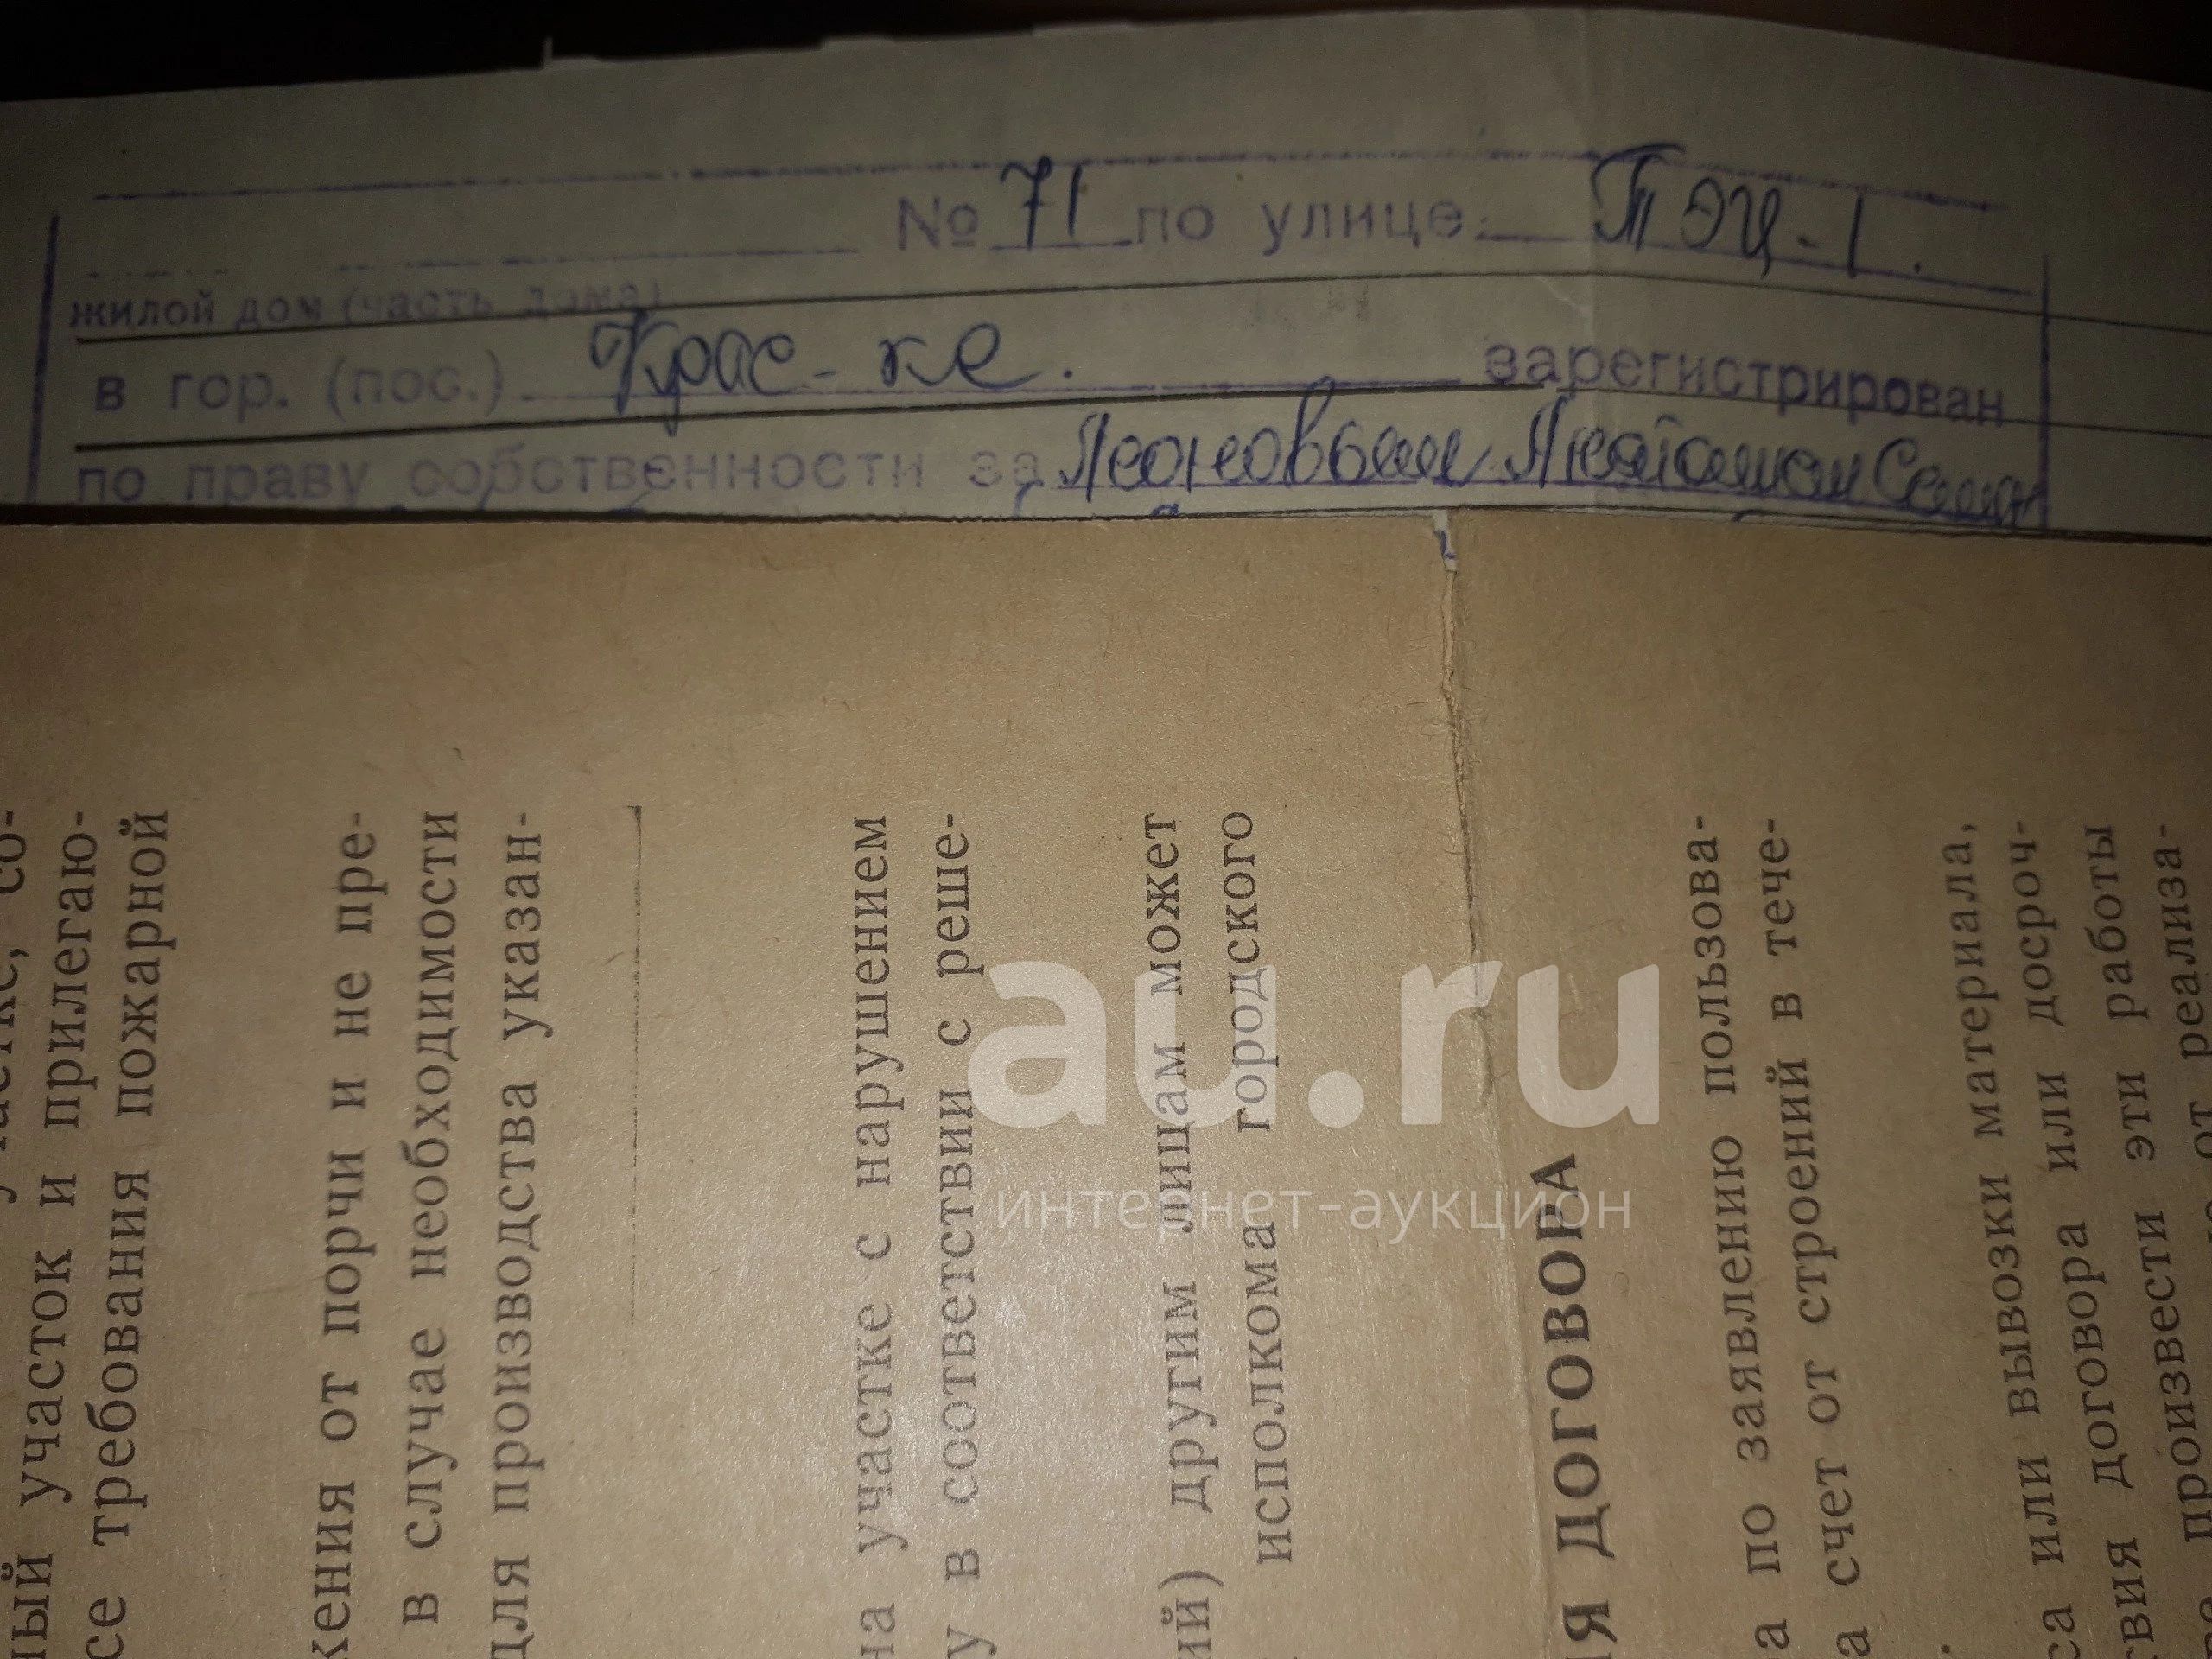 № 71 по улице ТЭЦ-1.
жилой дом (часть дома)
в гор. (пос.) Крас-ке. зарегистрирован
по праву собственности за Леоновым
ный участок и прилегаю-
се требования пожарной
жения от порчи и не пре-
в случае необходимости
для производства указан-
на участке с нарушением
у в соответствии с реше-
ий) другим лицам может
исполкома городского
ия ДОГОВОРА
а по заявлению пользова-
а счет от строений в тече-
са или вывозки материала,
твия договора или досроч-
произвести эти работы
от реализа-
au.ru
интернет-аукцион